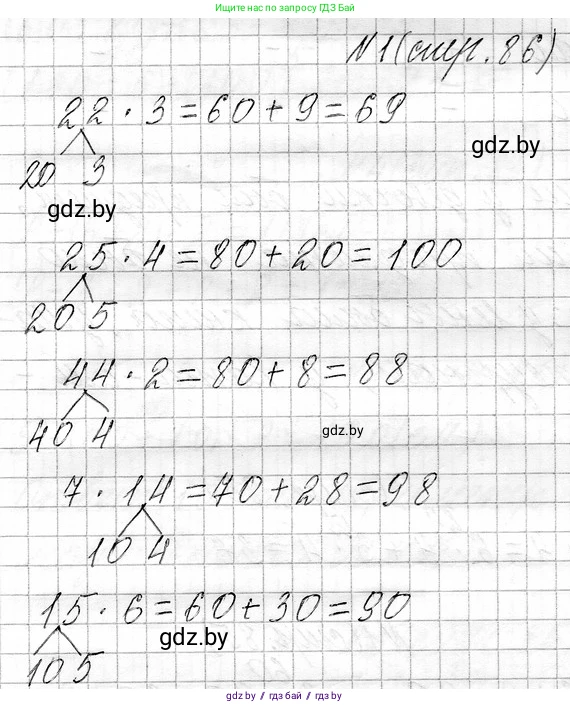 Ищите нас по запросу ГДЗ Бай
N1 (стр. 86)
22 · 3 = 60 + 9 = 69
gdz.by
20 3
gdz.by
25 · 4 = 80 + 20 = 100
20 5
44 · 2 = 80 + 8 = 88
40 4
gdz.by
7 · 14 = 70 + 28 = 98
10 4
15 · 6 = 60 + 30 = 90
gdz.by
10 5
gdz.by / гдз бай / гдз by